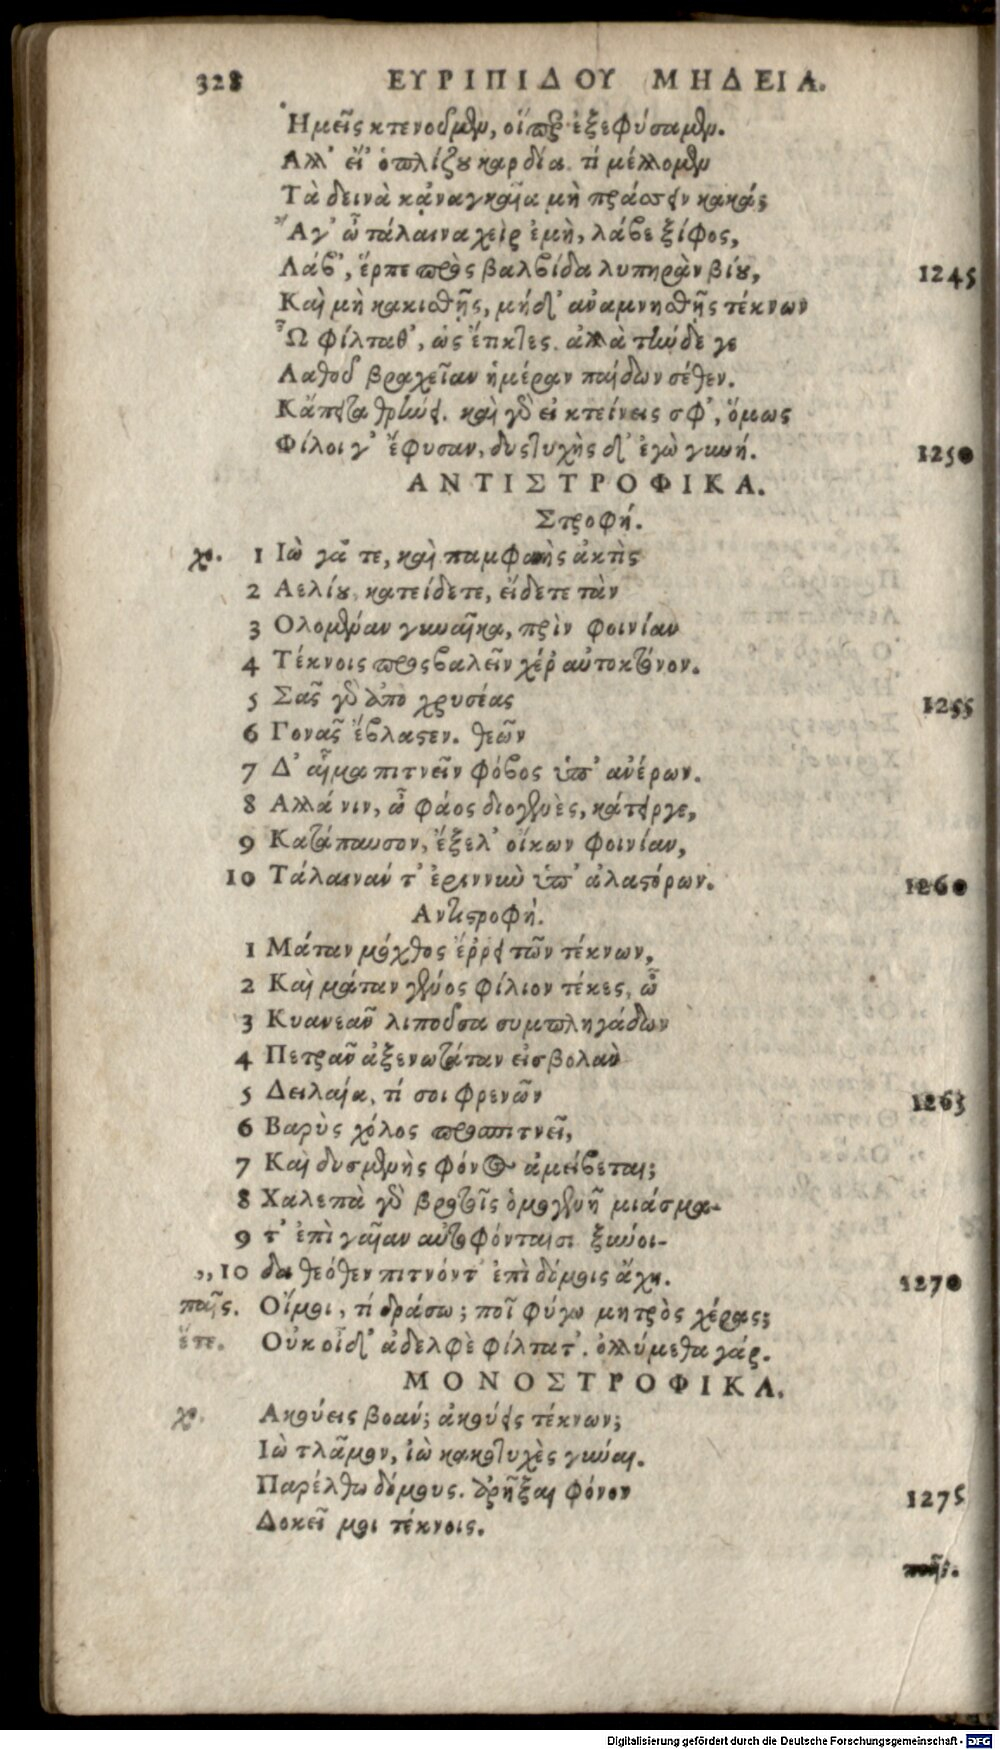 328 ΕΥΡΙΠΙΔΟΥ ΜΗΔΕΙΑ.
Ἡμεῖς κτενοῦμεν, οἵπερ ἐξεφύσαμεν.
Αλλ' εἶ' ὁπλίζου καρδία. τί μέλλομεν
Τὰ δεινὰ κἀναγκαῖα μὴ πράσσειν κακά;
Ἄγ' ὦ τάλαινα χεὶρ ἐμὴ, λάβε ξίφος,
Λάβ', ἕρπε πρὸς βαλβίδα λυπηρὰν βίου, 1245
Καὶ μὴ κακισθῇς, μήδ' ἀναμνησθῇς τέκνων
Ὦ φίλταθ', ὡς ἔτικτες. ἀλλὰ τήνδε γε
Λαθοῦ βραχεῖαν ἡμέραν παίδων σέθεν.
Κἄπειτα θρήνει. καὶ γὰρ εἰ κτείνεις σφ', ὅμως
Φίλοι γ' ἔφυσαν, δυστυχὴς δ' ἐγὼ γυνή. 1250
ΑΝΤΙΣΤΡΟΦΙΚΑ.
Στροφή.
χο. 1 Ιὼ γᾶ τε, καὶ παμφαὴς ἀκτὶς
2 Αελίου, κατείδετε, εἴδετε τὰν
3 Ολομέναν γυναῖκα, πρὶν φοινίαν
4 Τέκνοις προσβαλεῖν χέρ' αὐτοκτόνον.
5 Σᾶς γὰρ ἀπὸ χρυσέας 1255
6 Γονᾶς ἔβλαστεν. θεῶν
7 Δ' αἷμα πιτνεῖν φόβος ὑπ' ἀνέρων.
8 Αλλά νιν, ὦ φάος διογενὲς, κάτειργε,
9 Κατάπαυσον, ἔξελ' οἴκων φοινίαν,
10 Τάλαινάν τ' ἐριννὺν ὑπ' ἀλαστόρων. 1260
Αντιστροφή.
1 Μάταν μόχθος ἔῤῥει τῶν τέκνων,
2 Καὶ μάταν γένος φίλιον τέκες, ὦ
3 Κυανεᾶν λιποῦσα συμπληγάδων
4 Πετρᾶν ἀξενωτάταν εἰσβολὰν
5 Δειλαία, τί σοι φρενῶν 1265
6 Βαρὺς χόλος προσπιτνεῖ,
7 Καὶ δυσμενὴς φόνος ἀμείβεται;
8 Χαλεπὰ γὰρ βροτοῖς ὁμογενῆ μιάσμα-
9 τ' ἐπὶ γαῖαν αὐτοφόνταισι ξύνοι-
,, 10 δα θεόθεν πιτνόντ' ἐπὶ δόμοις ἄχη. 1270
παῖς. Οἴμοι, τί δράσω; ποῖ φύγω μητρὸς χέρας;
ἕτε. Οὐκ οἶδ' ἀδελφὲ φίλτατ'. ὀλλύμεθα γάρ.
ΜΟΝΟΣΤΡΟΦΙΚΑ.
χο. Ακούεις βοάν; ἀκούεις τέκνων;
Ιὼ τλᾶμον, ἰὼ κακοτυχὲς γύναι.
Παρέλθω δόμους. ἀρῆξαι φόνον 1275
Δοκεῖ μοι τέκνοις.
παῖς.
Digitalisierung gefördert durch die Deutsche Forschungsgemeinschaft - DFG